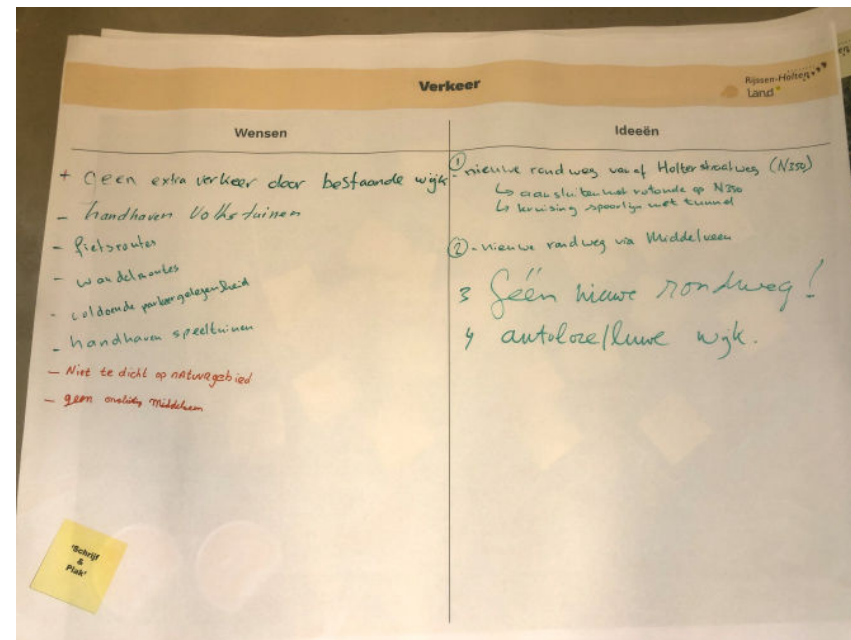 Verkeer
Rijssen-Holten
Land
Wensen
+ Geen extra verkeer door bestaande wijk
- handhaven Volkstuinen
- fietsroutes
- wandelroutes
- voldoende parkeergelegenheid
- handhaven speeltuinen
- Niet te dicht op natuurgebied
- geen Middelveen
'Schrijf
&
Plak'
Ideeën
1 - nieuwe rondweg vanaf Holterstraatweg (N350)
↳ aansluiten met rotonde op N350
↳ kruising spoorlijn met tunnel
2 - nieuwe rondweg via Middelveen
3 Géén nieuwe rondweg!
4 autoloze/luwe wijk.